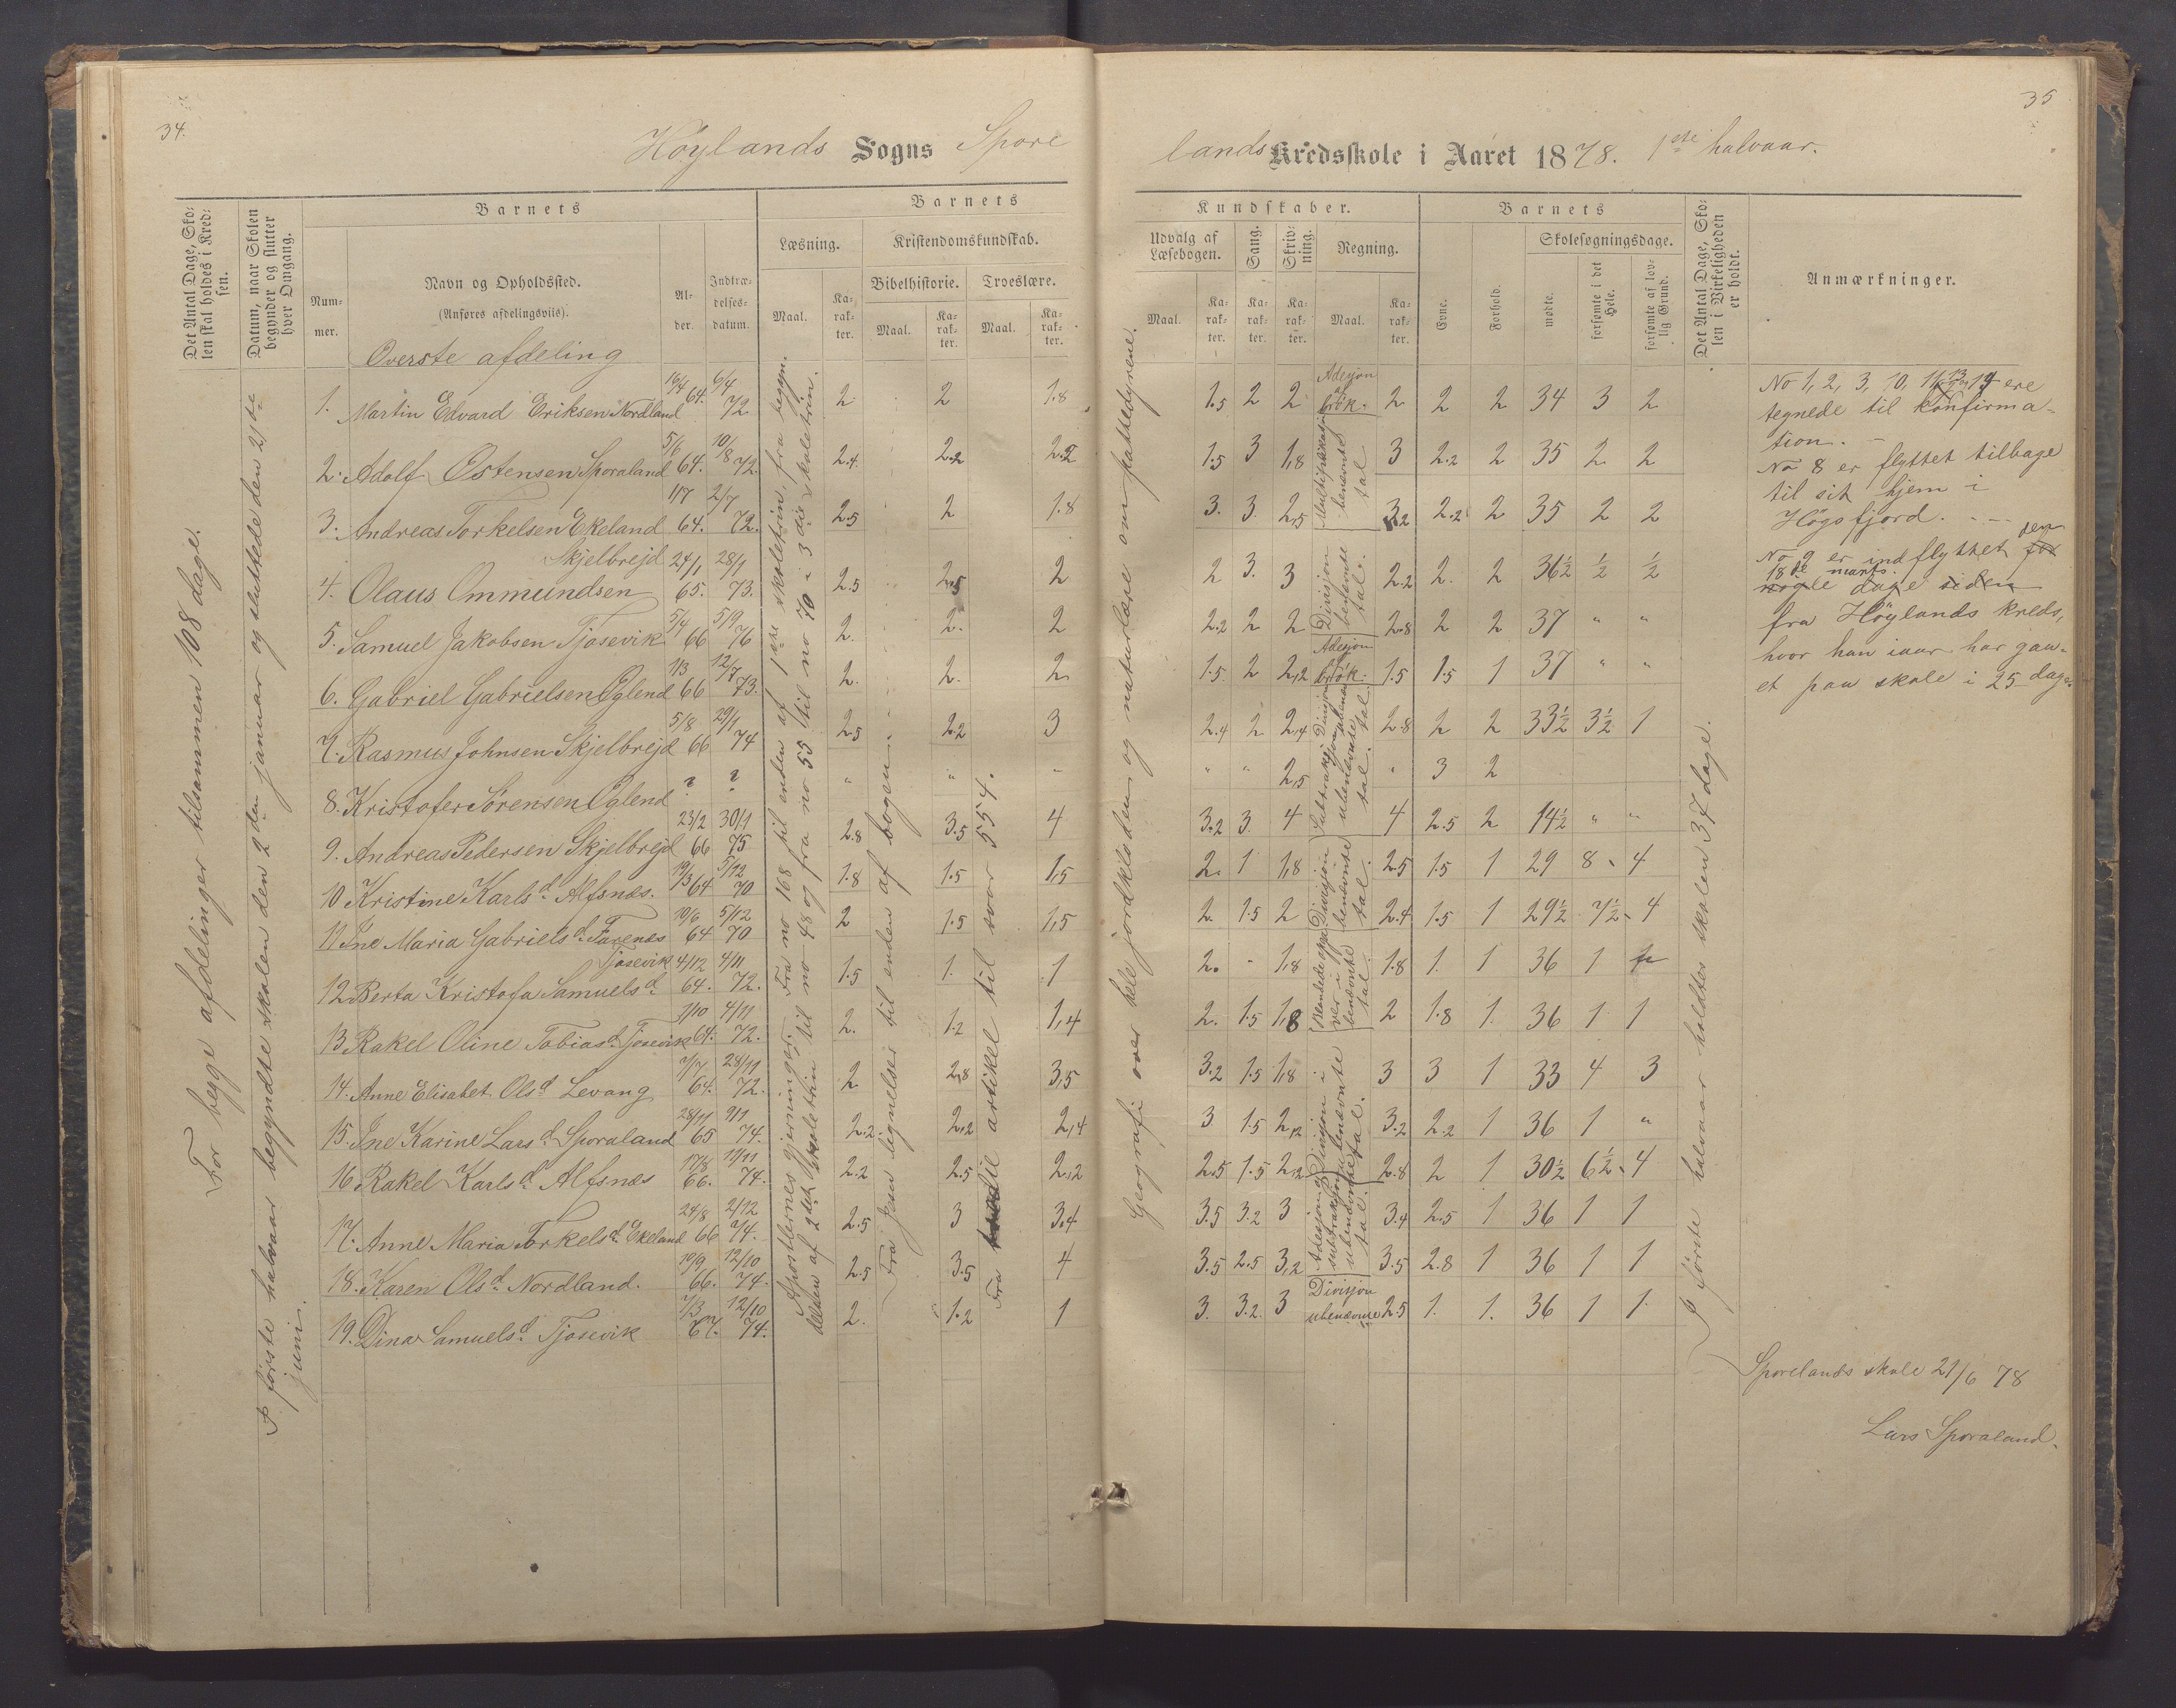 34.
35
Höylands Sogns Spore
lands Kredsskole i Aaret 1878. 1ste halvaar.
Det Antal Dage, Skolen skal holdes i Kredsen.
Datum, naar Skolen begynder og slutter hver Omgang.
Barnets
Nummer.
Navn og Opholdssted.
(Anføres afdelingsviis).
Alder.
Indtrædelsesdatum.
Barnets
Læsning.
Maal.
Karakter.
Kristendomskundskab.
Bibelhistorie.
Maal.
Karakter.
Troeslære.
Maal.
Karakter.
Kundskaber.
Udvalg af Læsebogen.
Maal.
Karakter.
Sang.
Karakter.
Skrivning.
Karakter.
Regning.
Maal.
Karakter.
Barnets
Evne.
Forhold.
Skolesøgningsdage.
mødte.
forsømte i det Hele.
forsømte af lovlig Grund.
Det Antal Dage, Skolen i Virkeligheden er holdt.
Anmærkninger.
For begge afdelinger tilsammen 108 dage.
I første halvaar begyndte skolen den 2den januar og sluttede den 21de juni.
Overste afdeling
1. Martin Edvard Eriksen Nordland 16/4 64. 6/4 72 2 2 1.8 1.5 2 2 2 2 2 34 3 2
2. Adolf Ostensen Sporaland 5/6 64. 10/8 72. 2.4 2.2 2.2 1.5 3 1,8 3 2.2 2 35 2 2
3. Andreas Torkelsen Ekeland 1/7 64. 2/7 72. 2.5 2 1.8 3. 3. 2,5 3,2 2.2 2 35 2 2
4. Olaus Ommundsen Skjelbrejd 24/1 65. 28/1 73. 2.5 2.5 2 2 3. 3 2.2 2. 2 36½ ½ ½
5. Samuel Jakobsen Tjosevik 5/4 66 5/9 76 2. 2. 2 2.2 2 2 2.8 2 2 37 " "
6. Gabriel Gabrielsen Oglend 1/3 66 12/7 73. 2. 2. 2. 1.5 2 2,2 1.5 1.5 1 37 " "
7. Rasmus Johnsen Skjelbrejd 5/8 66 29/1 74 2.5 2.2 3 2.4 2 2,4 2.8 2 2 33½ 3½ 1
8. Kristofer Sörensen Oglend ? ? " " " " " 2,5 " 3 2
9. Andreas Pedersen Skjelbrejd 23/2 66 30/1 75 2.8 3.5 4 3.2 3. 4 4 2.5 2 14½ " "
10 Kristine Karlsd. Alfsnes. 19/3 64 5/12 70 1.8 1.5 1,5 2. 1 1,8 2.5 1.5 1 29 8 4
11 Ine Maria Gabrielsd. Farenes 10/6 64 5/12 70 2 1.5 1,5 2. 1.5 2 2.4 1.5 1 29½ 7½ 4
12 Berta Kristofa Samuelsd. Tjosevik 4/12 64. 4/11 72. 1.5 1. 1 2. " 1,8 1.8 1. 1 36 1
13 Rakel Oline Tobiasd. Tjosevik 64. 4/11 72. 2. 1.2 1,4 2. 1.5 1,8 2 1.8 1. 36 1 1
14. Anne Elisabet Olsd. Levang 7/7 64. 28/11 72. 2 2,8 3,5 3.2 1.5 1,8 3 3 1 33 4 3
15. Ine Karine Larsd. Sporaland 28/11 65 9/1 74. 2.2 2,2 2,4 3 1.5 2,2 3.2 2.2 1 36 1 "
16 Rakel Karlsd. Alfsnes 17/8 66. 11/11 74. 2.2 2.5 2,2 2.5 1.5 2,2 2.8 2 1 30½ 6½ 4
17. Anne Maria Torkelsd. Ekeland 24/8 66 2/12 74. 2.5 3 3,4 3.5 3.2 3 3.4 2.5 1 36 1 1
18. Karen Olsd. Nordland. 10/9 66. 12/10 74. 2.5 3.5 4 3.5 2.5 3,2 3.5 2.8 1 36 1 1
19. Dina Samuelsd. Tjosevik 7/3 67. 12/10 74. 2. 1.2 1 3. 3.2. 3 2.5 1. 1. 36 1 1
Apostlernes gjerninger. Fra no 168 til enden af 1ste skoletrin, fra begyn-
delsen af 2det skoletrin til no 48 og fra no 55 til no 70 i 3die skoletrin.
Fra Jesu lignelser til enden af bogen.
Fra tredie artikel til svar 554.
Geografi over hele jordkloden og naturlære om pattedyrene.
Adesjon brök.
Multiplikasjon benevnte tal
Divisjon benevnte tal.
Adesjon brök.
Divisjon ubenevnte tal.
Subtraksjon ubenevnte tal.
Divisjon benevnte tal.
Blandede opgaver i benevnte tal.
Divisjon i ubenevnte tal.
Adesjon og subtraksjon ubenevnte tal.
Divisjon ubenevnte
I første halvaar holdtes skolen 37 dage.
No 1, 2, 3, 10, 11, 13 og 14 ere
tegnede til konfirma-
tion. -
No 8 er flyttet tilbage
til sit hjem i
Högsfjord. - -
No 9 er indflyttet den for
18de marts
nogle dage siden
fra Höylands kreds,
hvor han iaar har gaa-
et paa skole i 25 dage.
Sporelands skole 21/6 78
Lars Sporaland.